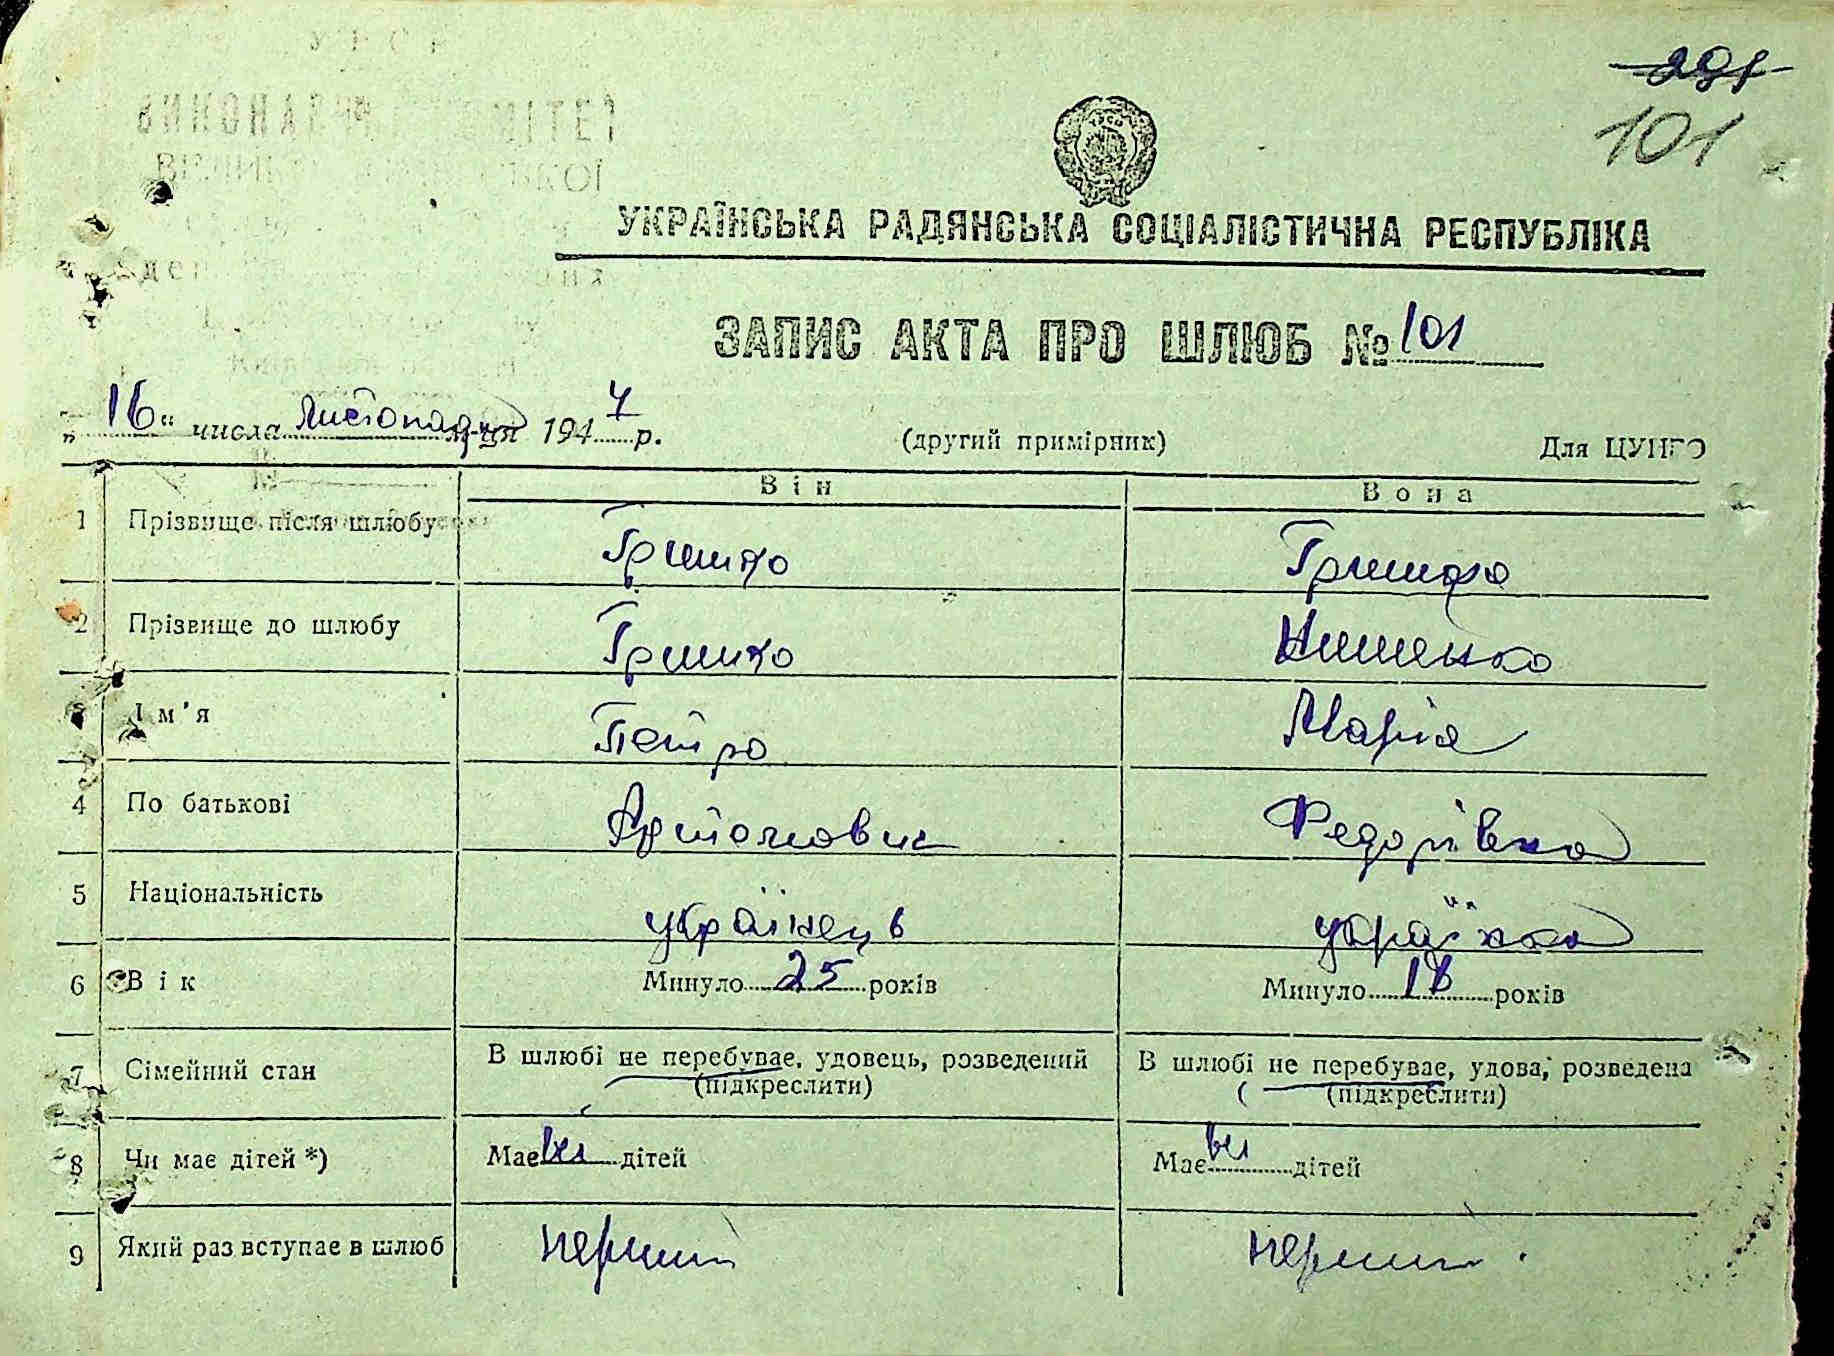 291
101
УКРАЇНСЬКА РАДЯНСЬКА СОЦІАЛІСТИЧНА РЕСПУБЛІКА
ЗАПИС АКТА ПРО ШЛЮБ № 101
„16“ числа листопада м-ця 1947 р. (другий примірник) Для ЦУНГО
Він Вона
1 Прізвище після шлюбу Гришко Гришко
2 Прізвище до шлюбу Гришко
3 Ім'я Петро Марія
4 По батькові Артомович Федорівна
5 Національність українець українка
6 Вік Минуло 25 років Минуло 18 років
7 Сімейний стан В шлюбі не перебуває, удовець, розведений В шлюбі не перебуває, удова, розведена
(підкреслити) (підкреслити)
8 Чи має дітей *) Має дітей Має дітей
9 Який раз вступає в шлюб перший перший